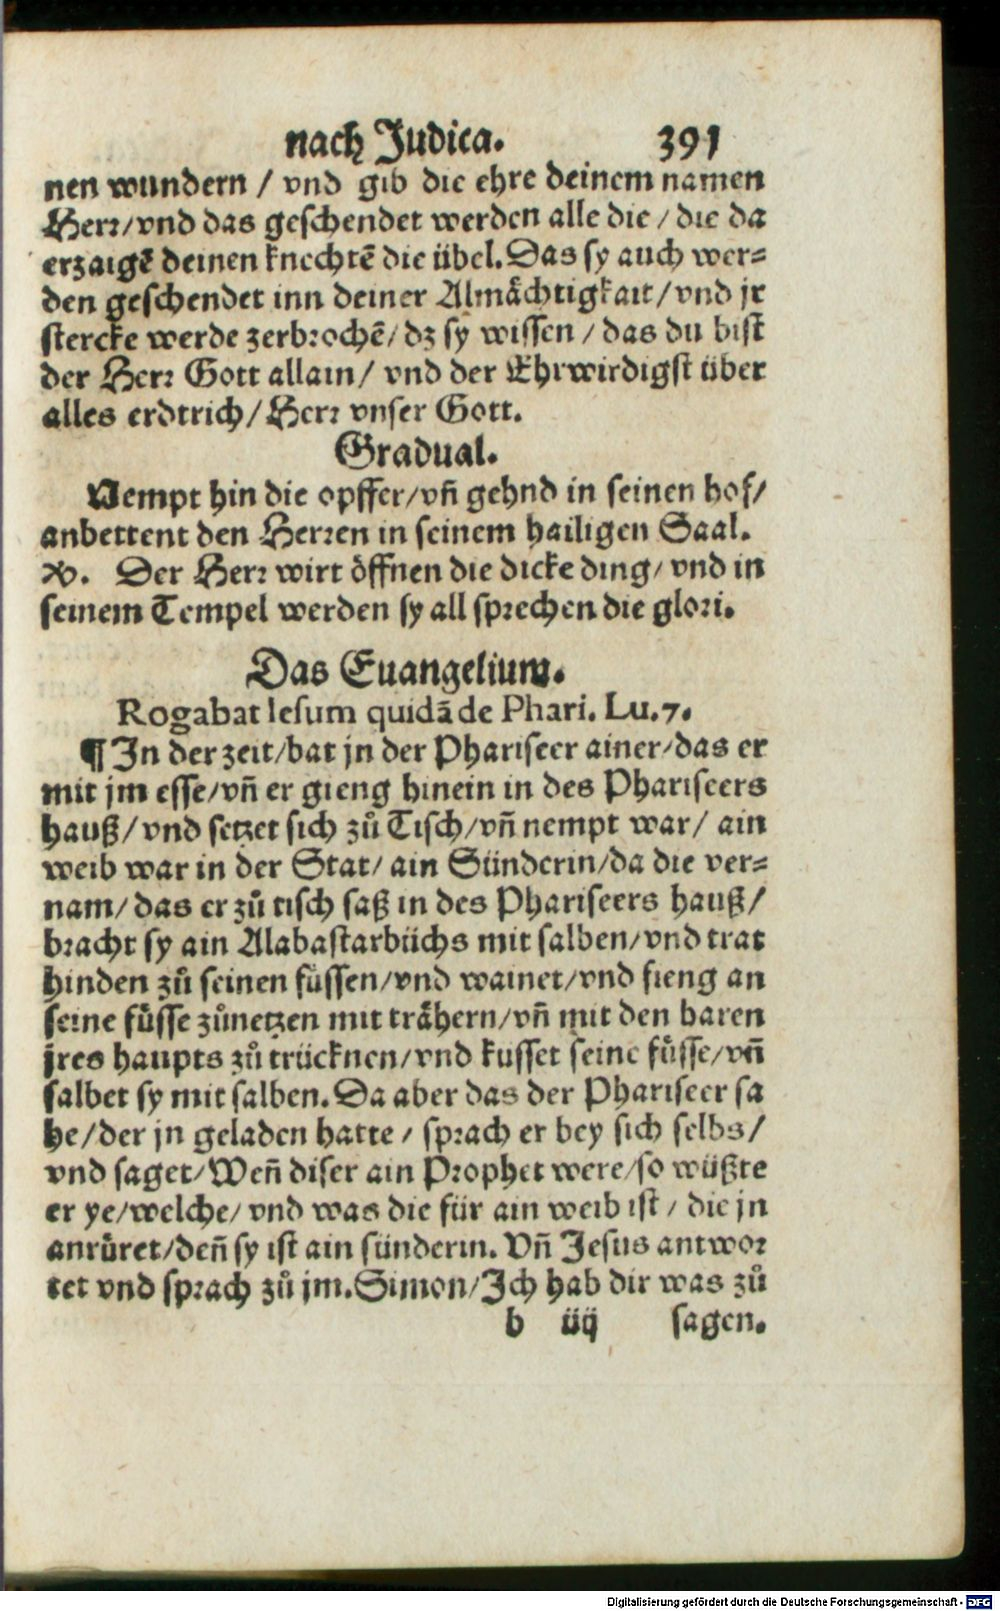 nach Judica. 391
nen wundern / vnd gib die ehre deinem namen
Herꝛ/vnd das geschendet werden alle die / die da
erzaigẽ deinen knechtẽ die übel. Das sy auch wer=
den geschendet inn deiner Almächtigkait/vnd jr
stercke werde zerbꝛochẽ/ dz sy wissen / das du bist
der Herꝛ Gott allain/ vnd der Ehrwirdigst über
alles erdtrich/ Herꝛ vnser Gott.
Gradual.
Nempt hin die opffer/vñ gehnd in seinen hof/
anbettent den Herꝛen in seinem hailigen Saal.
℣. Der Herꝛ wirt öffnen die dicke ding/ vnd in
seinem Tempel werden sy all spꝛechen die gloꝛi.
Das Euangelium.
Rogabat Iesum quidã de Phari. Lu.7.
¶ In der zeit/bat jn der Phariseer ainer/das er
mit jm esse/vñ er gieng hinein in des Phariseers
hauß/vnd setzet sich zů Tisch/vñ nempt war/ ain
weib war in der Stat/ ain Sünderin/da die ver=
nam/das er zů tisch saß in des Phariseers hauß/
bꝛacht sy ain Alabastarbüchs mit salben/vnd trat
hinden zů seinen füssen/vnd wainet/vnd fieng an
seine füsse zůnetzen mit trähern/vñ mit den haren
jres haupts zů trücknen/vnd kusset seine füsse/vñ
salbet sy mit salben. Da aber das der Phariseer sa
he/der jn geladen hatte / spꝛach er bey sich selbs/
vnd saget/Weñ diser ain Pꝛophet were/so wüßte
er ye/welche/ vnd was die für ain weib ist / die jn
anrüret/deñ sy ist ain sünderin. Vñ Jesus antwoꝛ
tet vnd spꝛach zů jm. Simon/Ich hab dir was zů
b iij sagen.
Digitalisierung gefördert durch die Deutsche Forschungsgemeinschaft - DFG